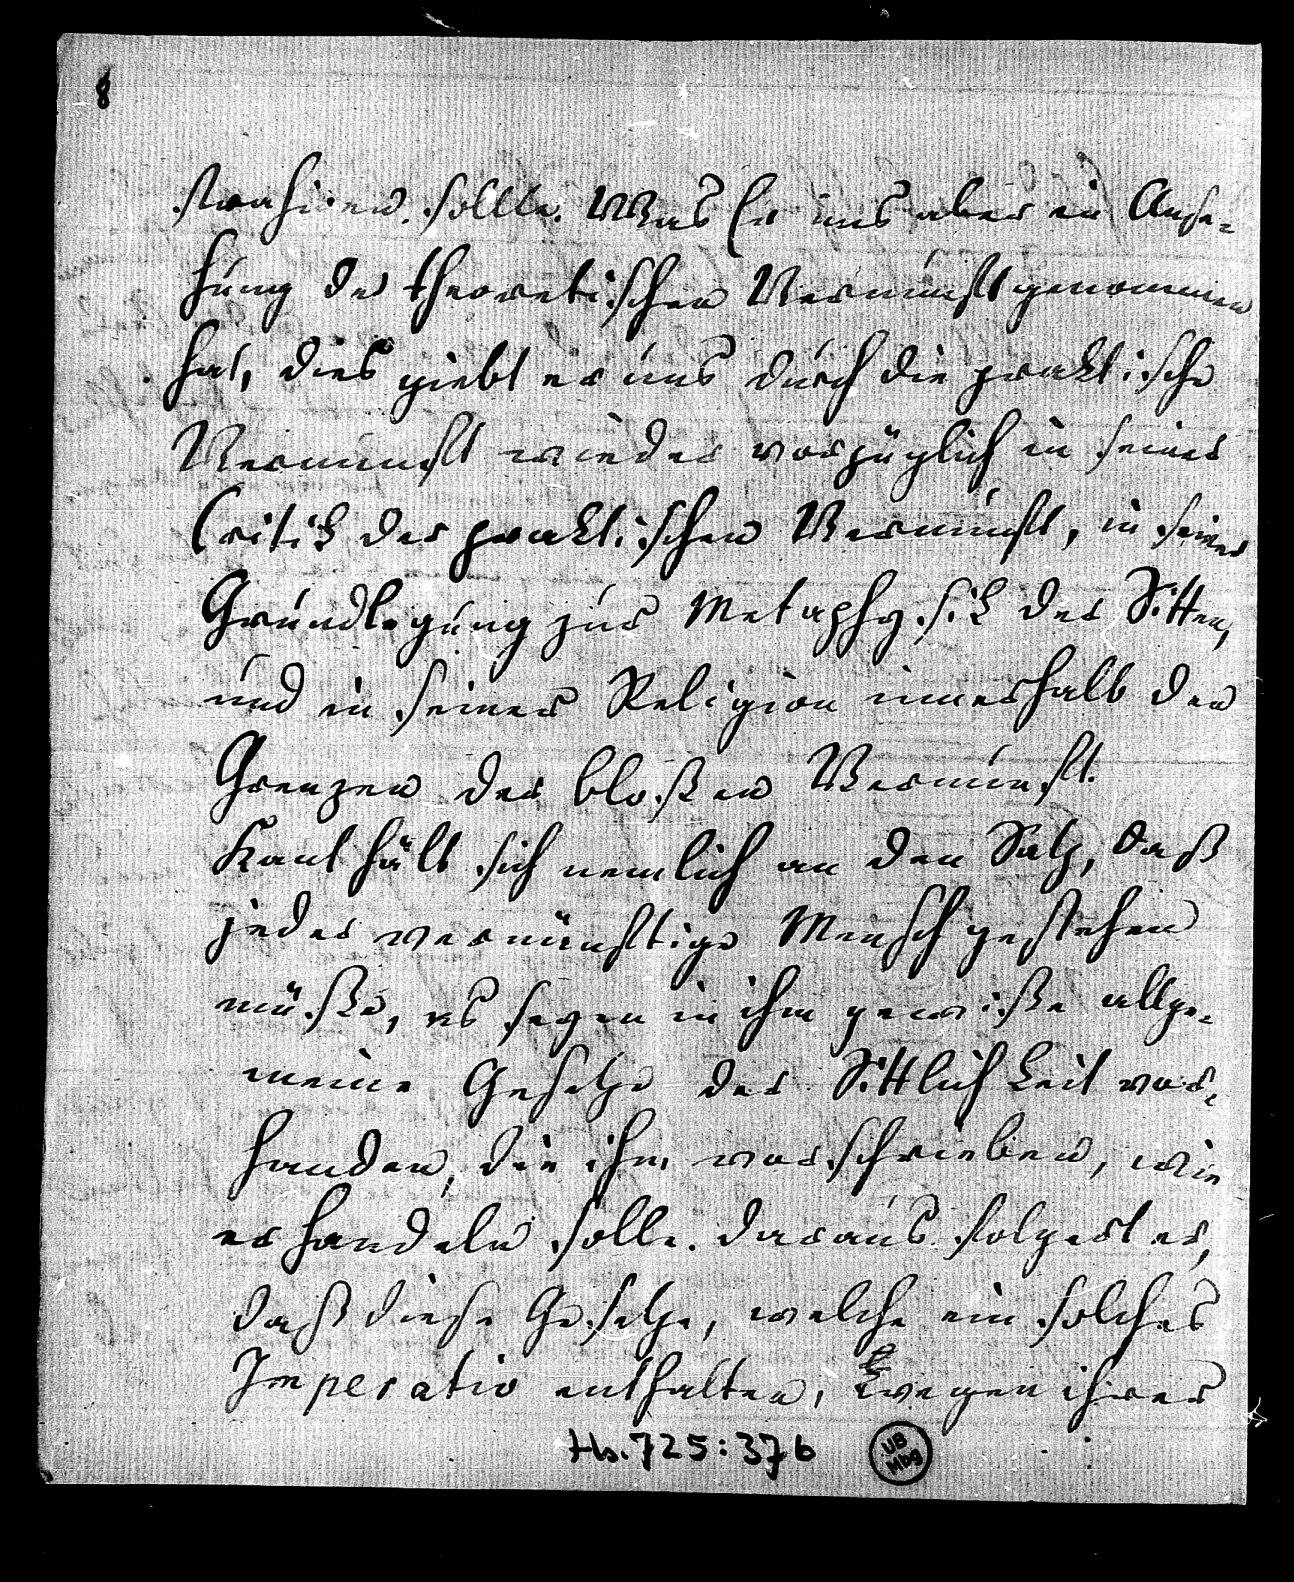 8
strahiren sollte. Was Er uns aber in Anse-
hung der theoretischen Vernunft genommen
hat, dies giebt er uns durch die praktische
Vernunft wieder vorzüglich in seiner
Critik der praktischen Vernunft, in seiner
Grundlegung zur Metaphysik der Sitten,
und in seiner Religion innerhalb den
Grenzen der bloßen Vernunft.
Kant hält sich nemlich an den Satz, daß
jeder vernünftige Mensch gestehen
müße, es seyen in ihm gewiße allge-
meine Gesetze der Sittlichkeit vor-
handen, die ihm vorschrieben, wie
er handeln solle. daraus folgert er,
daß diese Gesetze, welche ein solches
Imperativ enthalten, wegen ihrer
Hs. 725:37b
UB
Mbg